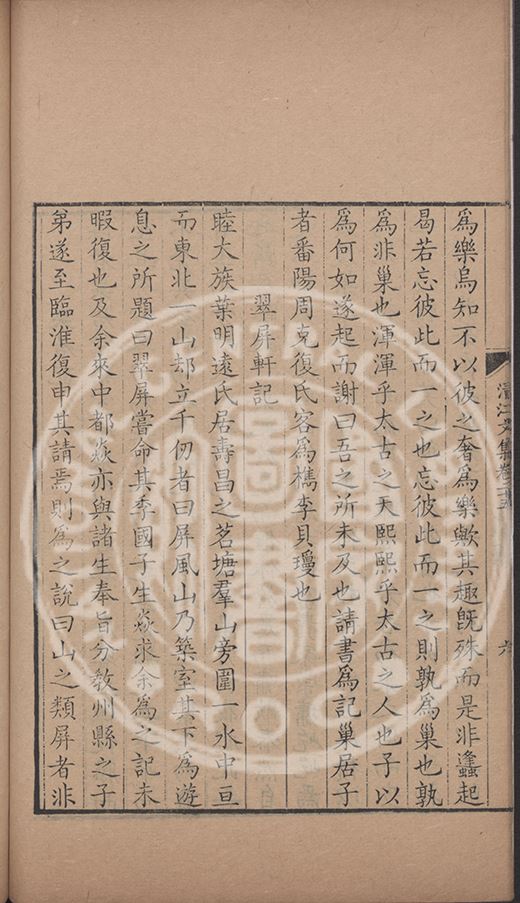 為樂烏知不以彼之奢為樂歟其趣旣殊而是非蠭起
曷若忘彼此而一之也忘彼此而一之則孰為巢也孰
為非巢也渾渾乎太古之天熙熙乎太古之人也子以
為何如遂起而謝曰吾之所未及也請書為記巢居子
者番陽周克復氏容為檇李貝瓊也
翠屏軒記
睦大族葉明遠氏居壽昌之茗塘羣山旁圍一水中亘
而東北一山却立千仞者曰屏風山乃築室其下為遊
息之所題曰翠屏嘗命其季國子生焱求余為之記未
暇復也及余來中都焱亦與諸生奉旨分教州縣之子
弟遂至臨淮復申其請焉則為之說曰山之類屏者非
清江文集卷
六